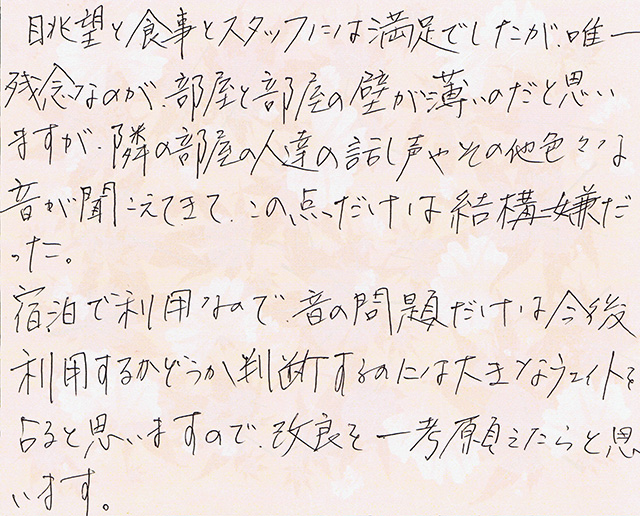 眺望と食事とスタッフには満足でしたが、唯一
残念なのが、部屋と部屋の壁が薄いのだと思い
ますが、隣の部屋の人達の話し声やその他色々な
音が聞こえてきて、この点だけは結構嫌だ
った。
宿泊で利用なので、音の問題だけは今後
利用するかどうか判断するのには大きなウェイトを
占ると思いますので、改良を一考願えたらと思
います。